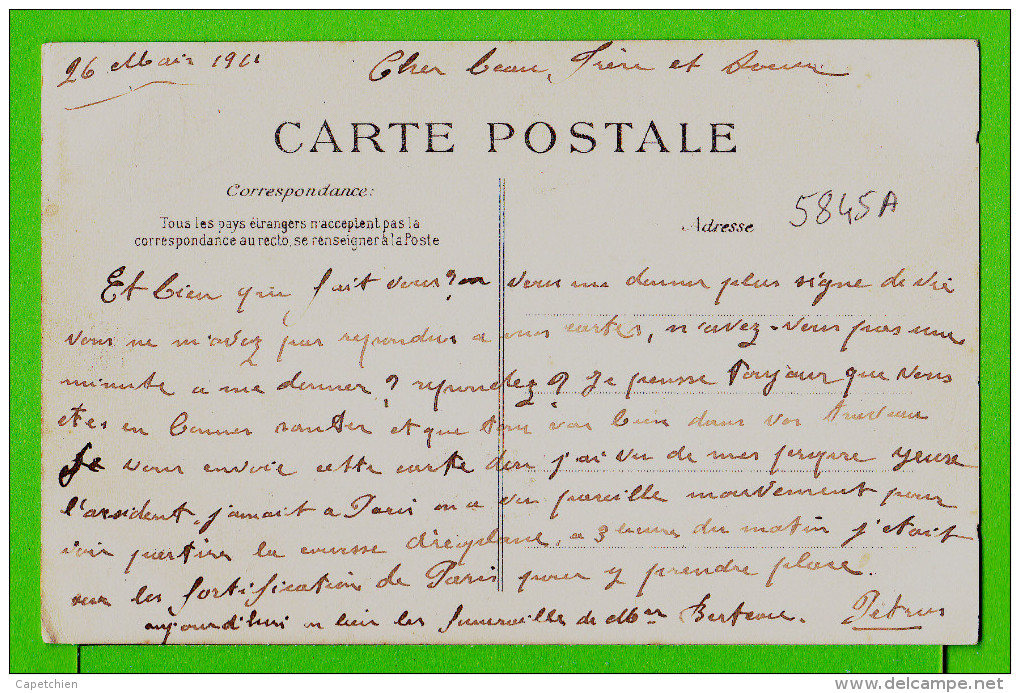 26 Mai 1911
Cher beau, Frère et Soeur
CARTE POSTALE
Correspondance:
Tous les pays étrangers n'acceptent pas la
correspondance au recto, se renseigner à la Poste
Adresse
5845A
Et bien que fait vous? on vous me donner plus signe de vie
vous ne m'avez pas repondus a mes cartes, n'avez-vous pas une
minute a me donner? repondez? Je pensse toujour que vous
etes en bonner santer et que tous vas bien dans vos traveau
Je vous envoie cette carte don j'ai vu de mes propre yeuse
l'arsident, jamait a Paris on a vu pareille mouvement pour
voir partire la coursse d'areoplane, a 3 heure du matin j'etait
sur les fortification de Paris pour y prendre place.
aujourd'hui a lieu les funerailles de Mr Berteau. Pétrus
Capetchien
delcampe.net